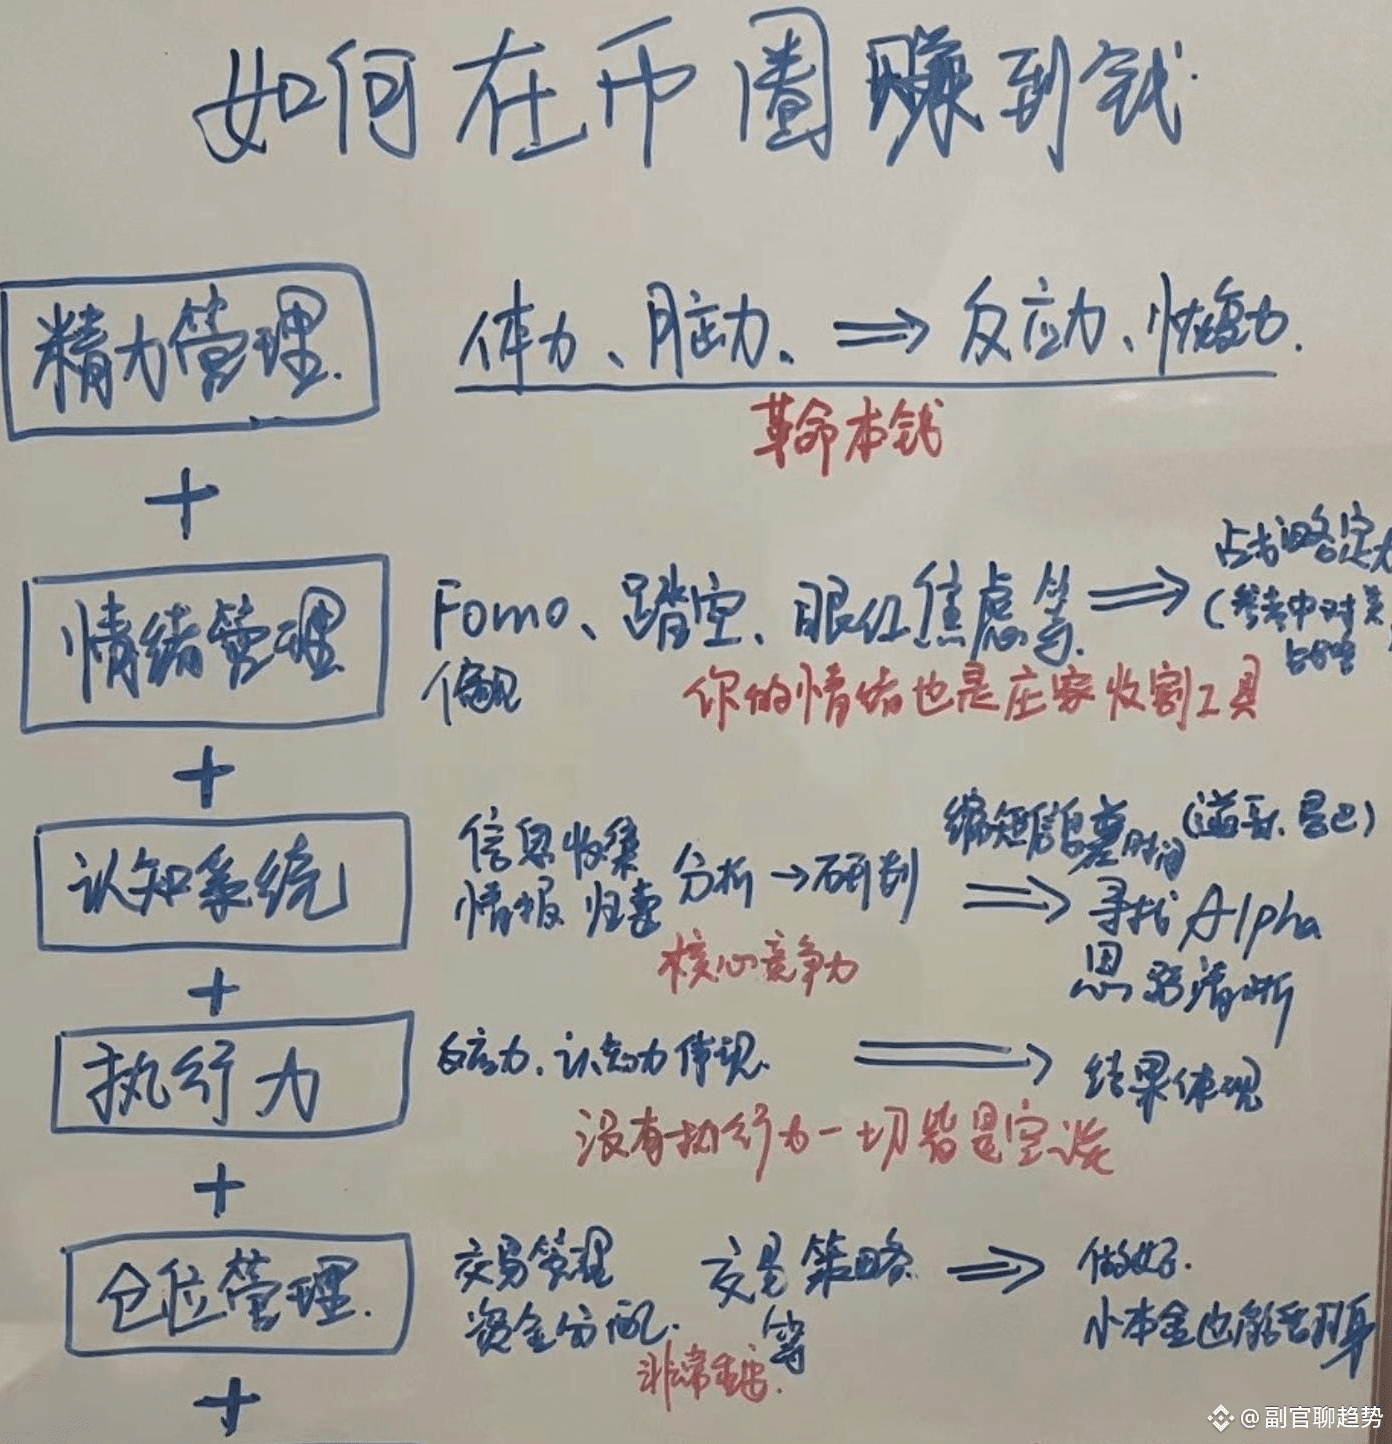 如何在币圈赚到钱.
精力管理.
体力、脑力、⇒反应力、恢复力.
革命本钱
+
情绪管理
Fomo、踏空、眼红焦虑等.⇒
偏见
战略定力
(参考中对美
战略
你的情绪也是庄家收割工具
+
认知系统
信息收集
情报归集
分析→研判
⇒
缩短信息差时间
寻找Alpha
思路清晰
核心竞争力
+
执行力
反应力、认知力体现.⇒结果体现
没有执行力一切皆是空谈
+
仓位管理.
交易管理
资金分配.
交易策略
等
⇒
做好.
小本金也能翻身
非常重要.
+
@副官聊趋势